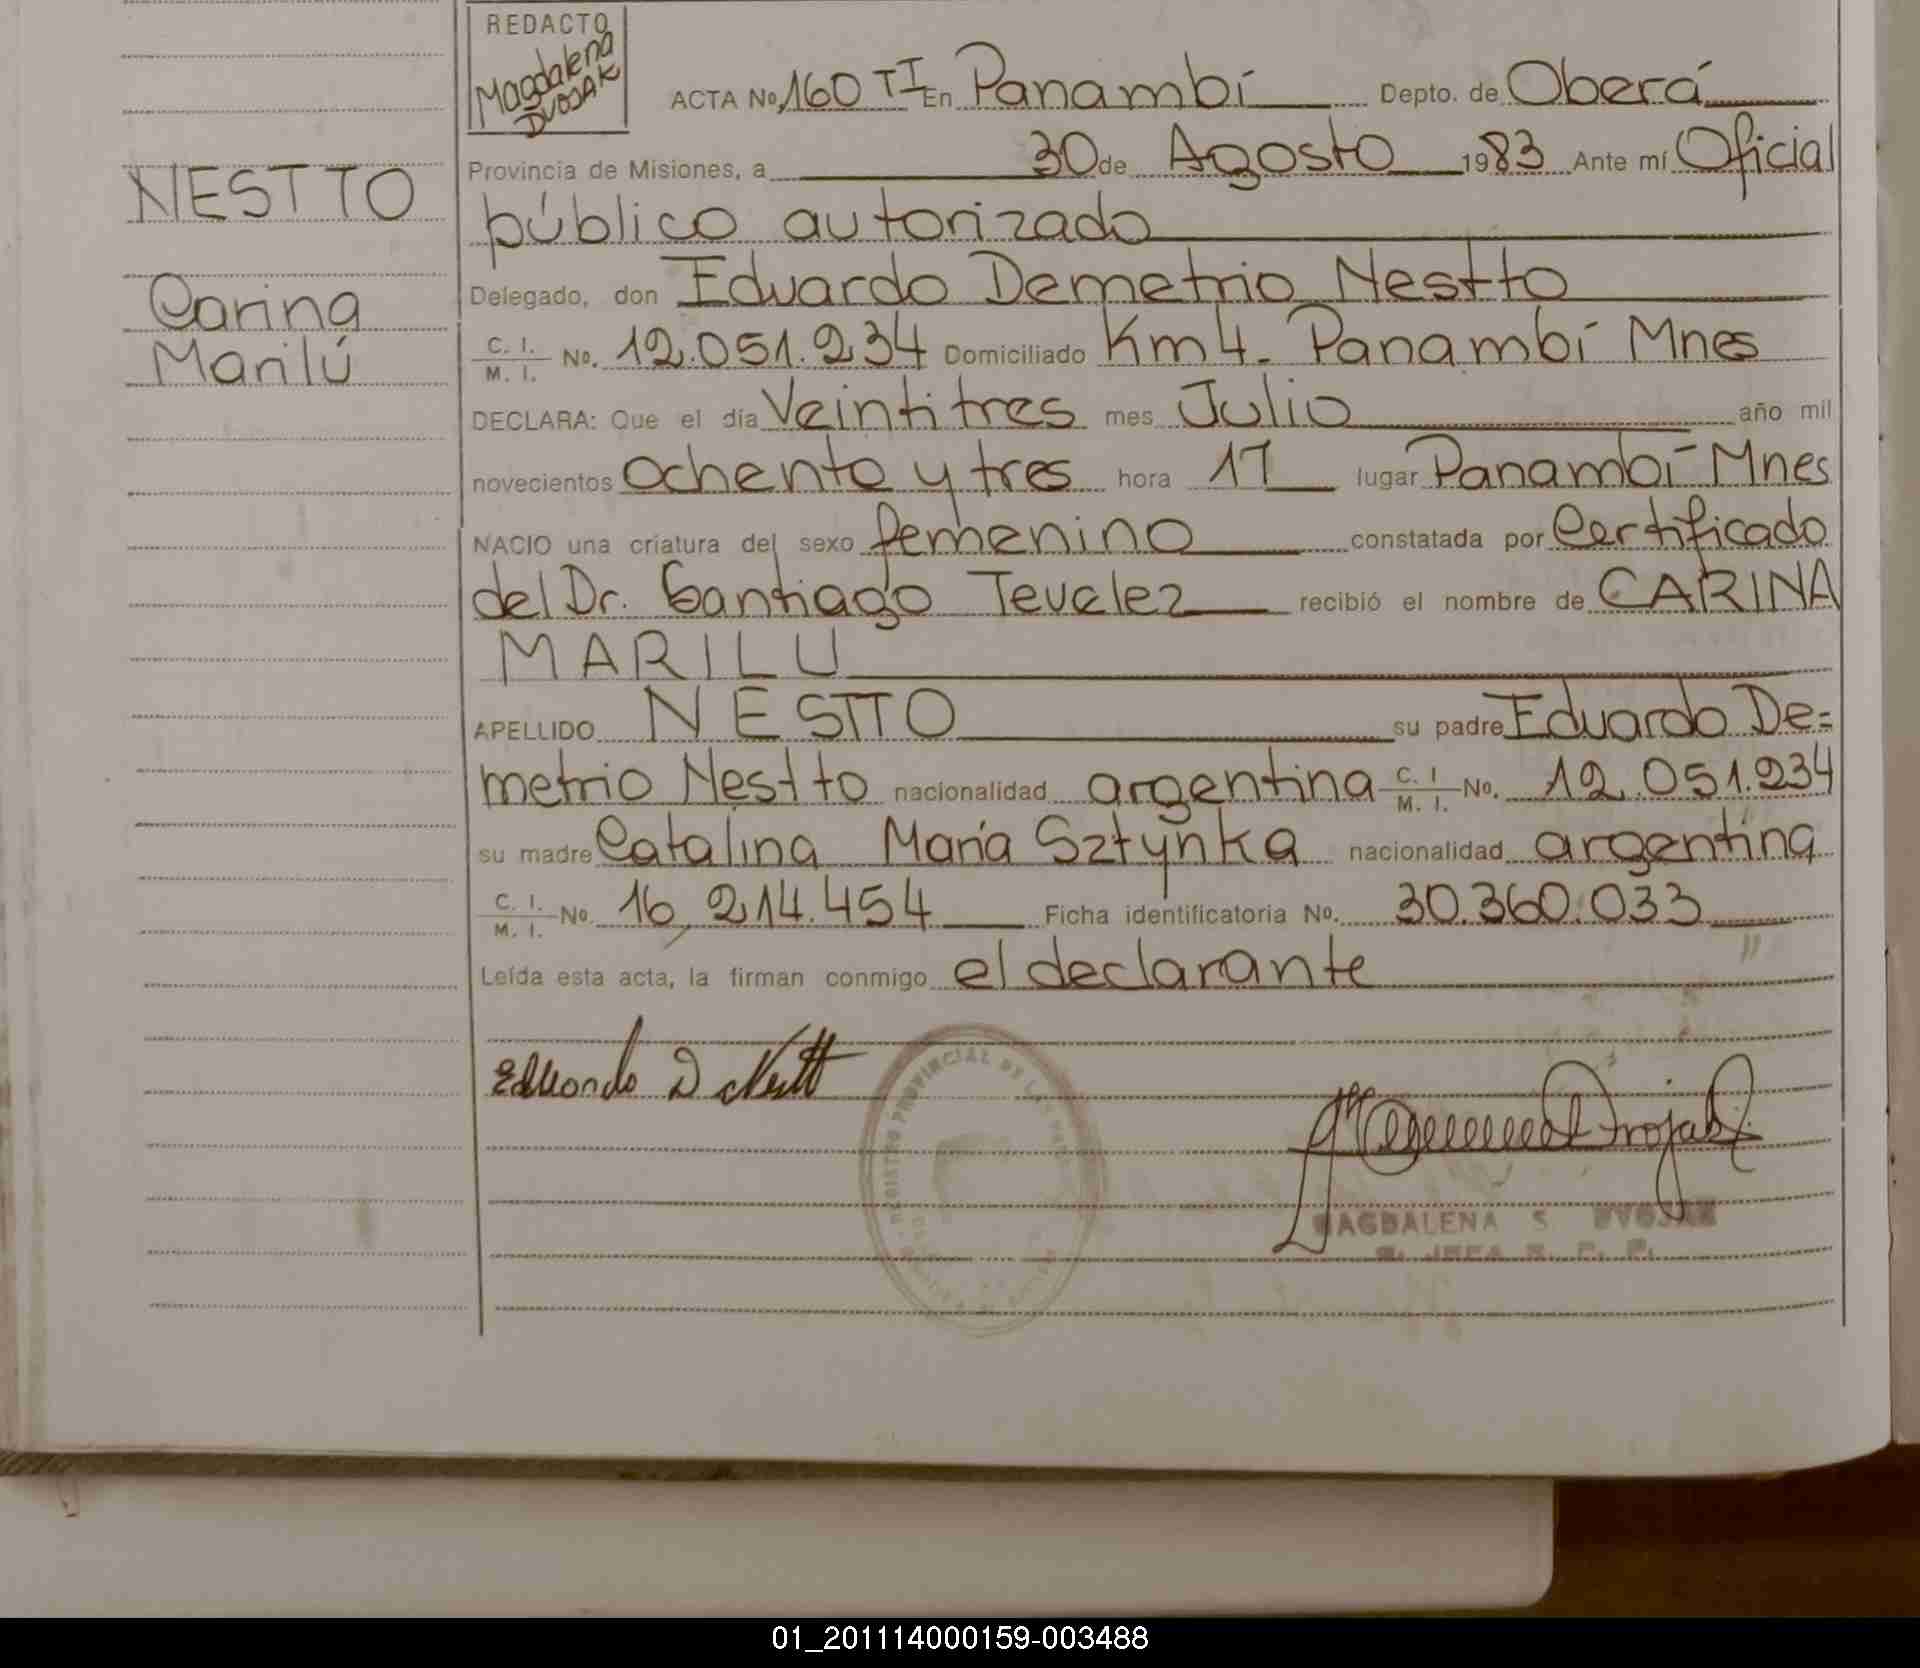 REDACTO
Magdalena
DVOJAK
ACTA No, 160 TI En Panambí Depto. de Oberá
Provincia de Misiones, a 30 de Agosto 1983 Ante mí Oficial
público autorizado
Delegado, don Eduardo Demetrio Nestto
C. I.
M. I. No. 12.051.234 Domiciliado Km 4- Panambí Mnes
DECLARA: Que el día Veintitres mes Julio año mil
novecientos ochenta y tres hora 17 lugar Panambí Mnes
NACIO una criatura del sexo femenino constatada por Certificado
del Dr. Santiago Tevelez recibió el nombre de CARINA
MARILU
APELLIDO NESTTO su padre Eduardo De=
metrio Nestto nacionalidad argentina C. I. M. I. No. 12.051.234
su madre Catalina María Sztynka nacionalidad argentina
C. I.
M. I. No. 16,214.454 Ficha identificatoria No. 30.360.033
Leída esta acta, la firman conmigo el declarante
NESTTO
Carina
Marilú
Eduardo D Nestt
REGISTRO PROVINCIAL DE LAS
MAGDALENA S. DVOJAK
01_201114000159-003488